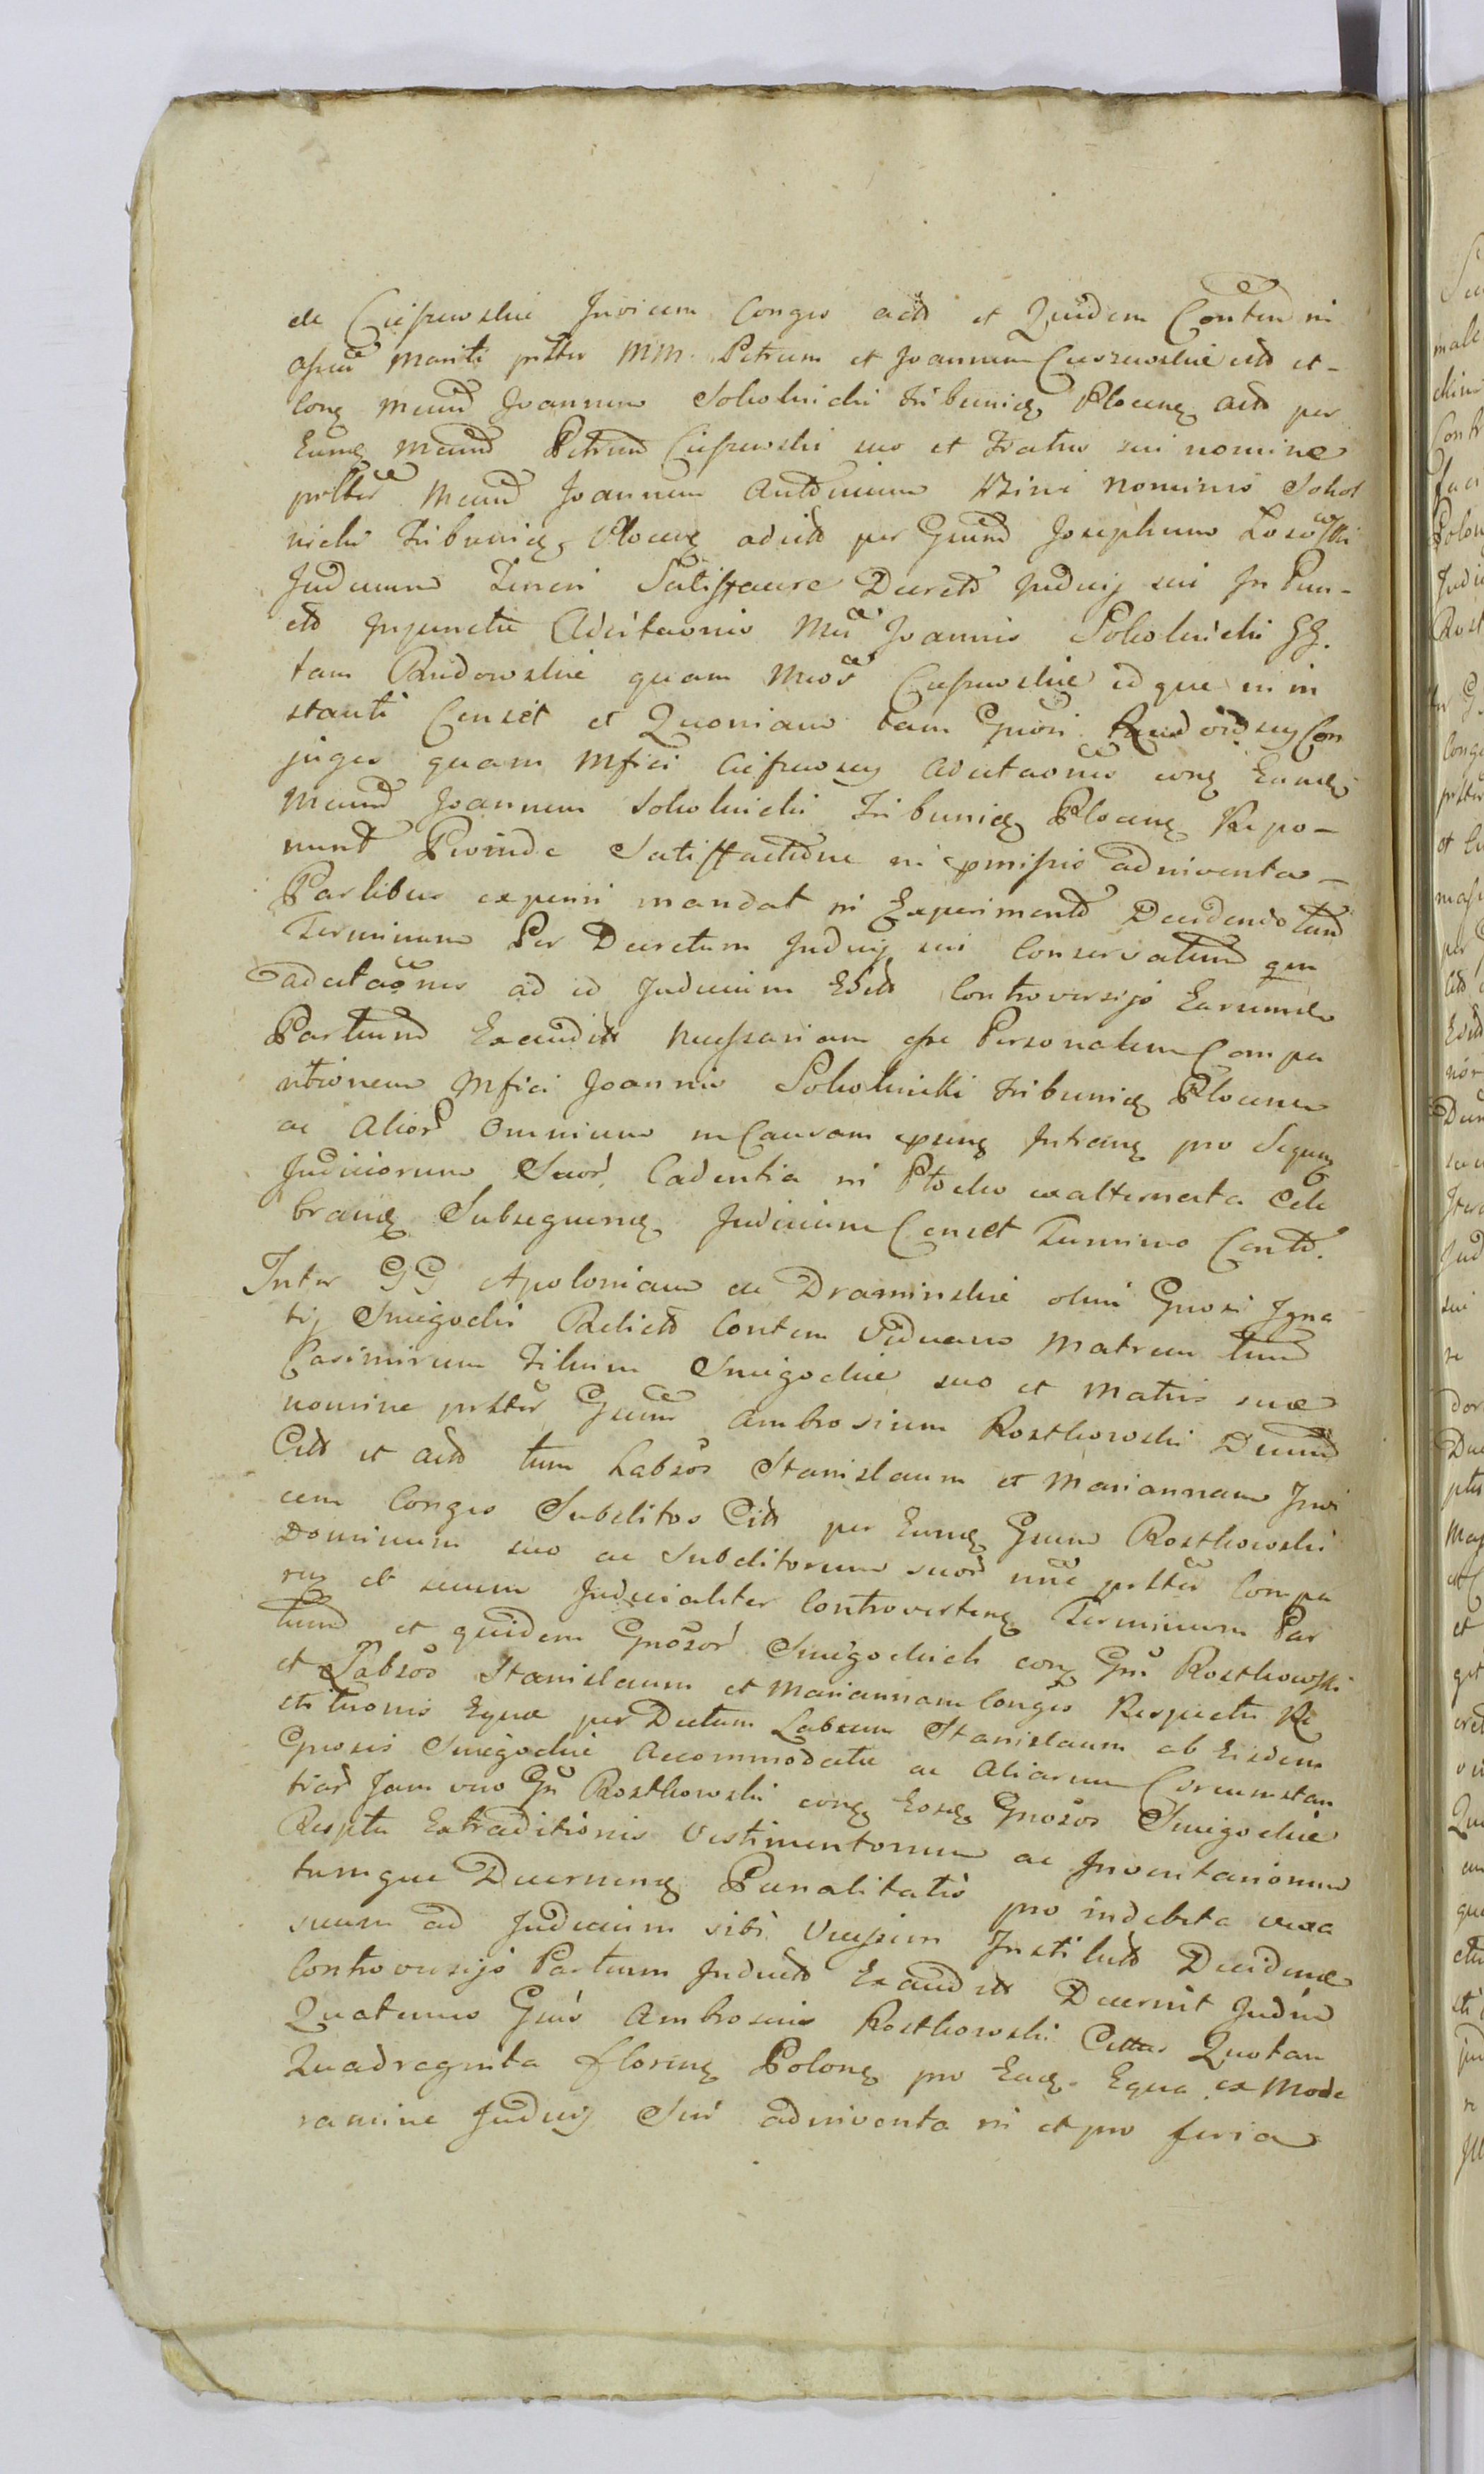 de Cieszewskie Invicem Conges acto et Quidem Conten in
assiā Mariti prstter MM. Petrum et Joannem Cieszewskie cito et
conq Mcum Joannem Sokolnicki Tribunid Plocens acto per
Eumq Mcum Petrum Cieszewski suo et Fratris sui nomine
prstter Mcum Joannem Antonium bini nominis Sokol
nicki Tribunid Plocens adcito per Gnum Josephum Losowski
Judicium Teneri Satisfacere Decreto Judicij sui In Pun-
cto Injuncta Adcitaonis Mci Joannis Sokolnicki GG.
tam Rudowskie quam Mcos Cieszewskie idque in in
stanti Censet et Quoniam tam Gnosi Rudowscy Con
juges quam Mfici Cieszewscy Adcitaonis conq Eumq
Mcum Joannem Sokolnicki Tribunid Plocens Repo-
nunt Proinde Satisfactione in pmissis adinventa
Partibus experiri mandat in Experimento Decidendo Tum
Terminum Per Decretum Judicij sui Conservatum qm
adcitaonis ad id Judicium Edito Controversijs Earumd
Partium Exauditis necessariam esse Personalem Compa
ritionem Mfici Joannis Sokolnicki Tribunid Plocens
ac Alior Omnium in Causam psens Intrans pro Sequen
Judiciorum Suor Cadentia in Plocko ex alternata Cele
brand Subsequend Judicium Censet Termino Conto.
Inter GG Apoloniam de Draminskie olim Gnosi Igna
tij Smigocki Relicto Conten Viduam Matrem Tum
Casimirum Filium Smigockie suo et Matris suæ
nomine prstter Gnum Ambrosium Rostkowski Dnum
Cito et acto tum Labsos Stanislaum et Mariannam Invi
cem Conges Subditos Cito per Eumq Gnum Rostkowski
Dominum suo ac Subditorum suor nne prstter Compa
rens et secum Judicialiter Controvertens Terminum Par
tium et quidem Gnosor Smigockich conq Gni Rostkowski
et Labsos Stanislaum et Mariannam Conges Respectu Re
stituonis Equæ per Dictum Labsum Stanislaum ab Eisdem
Gnosis Smigockie Accommodatæ ac Aliarum Circumstan
tiar Jam vero Gni Rostkowski conq Eosd Gnosos Smigockie
Resptu Extraditionis Vestimentorum ac Inventariorum
tumque Decernend Pænalitatis pro indebita vexa
suum ad Judicium sibi Vicissim Instituto Decidend
Controversijs Partium Judicto Exauditis Decernit Judici
Quatenus Gnus Ambrosius Rostkowski Cittus Quotam
Quadraginta florenq Polonq pro Ead Equa ex Mode
ramine Judicij Sui adinventa in et pro feria